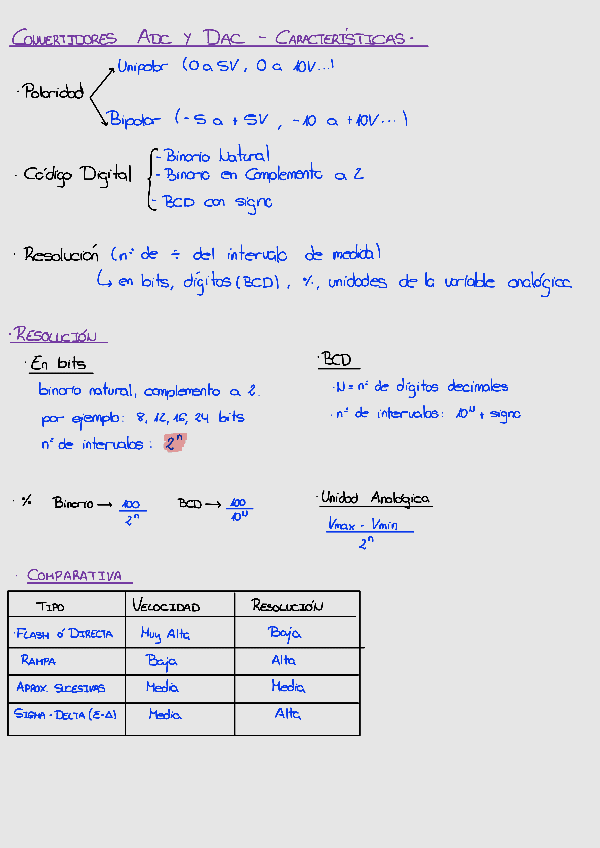 CONVERTIDORES ADC Y DAC - CARACTERÍSTICAS.
· Polaridad
Unipolar (0 a 5V, 0 a 10V...)
Bipolar (-5 a +5V, -10 a +10V...)
· Código Digital
- Binario Natural
- Binario en Complemento a 2
- BCD con signo
· Resolución (nº de ÷ del intervalo de medida)
↳ en bits, dígitos (BCD), %, unidades de la variable analógica
· RESOLUCIÓN
· En bits
binario natural, complemento a 2.
por ejemplo: 8, 12, 16, 24 bits
nº de intervalos: 2ⁿ
· BCD
· N = nº de dígitos decimales
· nº de intervalos: 10ᴺ + signo
· % Binario → 100/2ⁿ BCD → 100/10ᴺ
· Unidad Analógica
Vmax - Vmin / 2ⁿ
· COMPARATIVA
TIPO VELOCIDAD RESOLUCIÓN
· FLASH Ó DIRECTA Muy Alta Baja
RAMPA Baja Alta
APROX. SUCESIVAS Media Media
SIGMA-DELTA (Σ-Δ) Media Alta